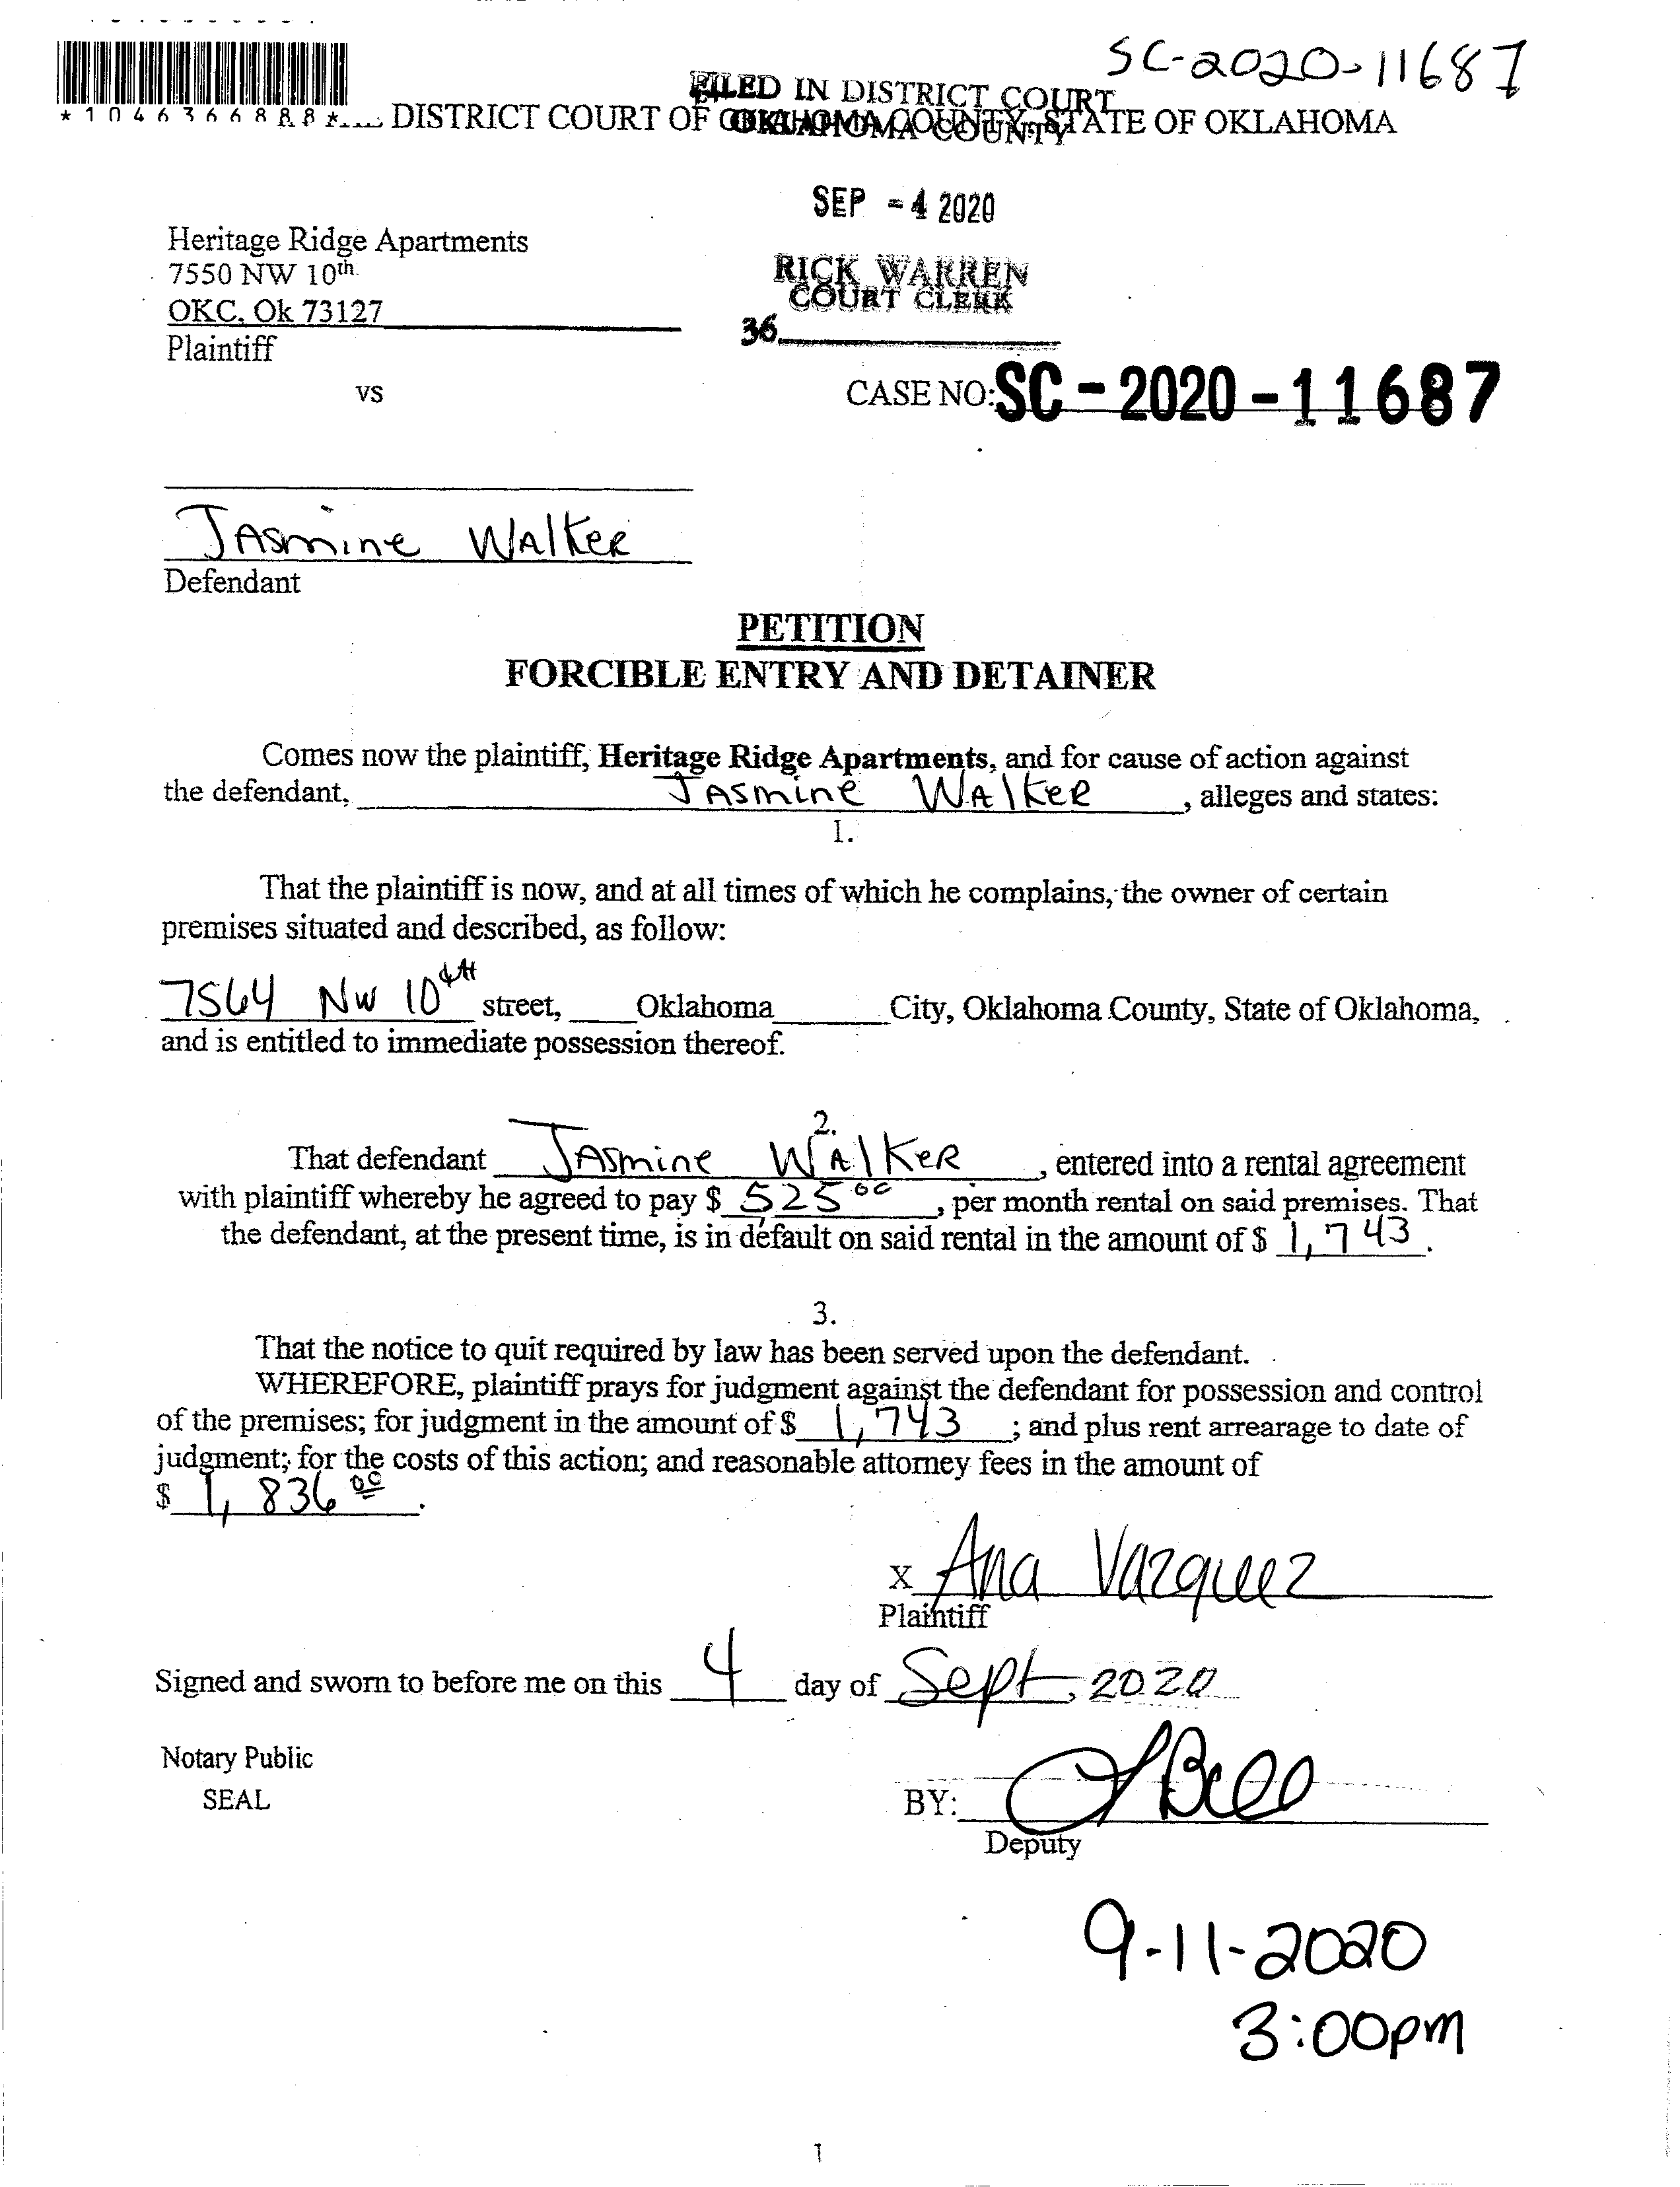 SC-2020-11687
FILED IN DISTRICT COURT
OKLAHOMA COUNTY
*1046366888*
DISTRICT COURT OF OKLAHOMA COUNTY, STATE OF OKLAHOMA
SEP -4 2020
Heritage Ridge Apartments
7550 NW 10th
OKC, Ok 73127
Plaintiff
RICK WARREN
COURT CLERK
36
vs
CASE NO: SC-2020-11687
Jasmine Walker
Defendant
PETITION
FORCIBLE ENTRY AND DETAINER
Comes now the plaintiff, Heritage Ridge Apartments, and for cause of action against
the defendant, Jasmine Walker, alleges and states:
1.
That the plaintiff is now, and at all times of which he complains, the owner of certain
premises situated and described, as follow:
7564 NW 10th street, Oklahoma City, Oklahoma County, State of Oklahoma,
and is entitled to immediate possession thereof.
2.
That defendant Jasmine Walker, entered into a rental agreement
with plaintiff whereby he agreed to pay $ 525 00, per month rental on said premises. That
the defendant, at the present time, is in default on said rental in the amount of $ 1,743.
3.
That the notice to quit required by law has been served upon the defendant.
WHEREFORE, plaintiff prays for judgment against the defendant for possession and control
of the premises; for judgment in the amount of $ 1,743; and plus rent arrearage to date of
judgment; for the costs of this action; and reasonable attorney fees in the amount of
$ 1,836 00.
X Ana Vazquez
Plaintiff
Signed and sworn to before me on this 4 day of Sept, 2020
Notary Public
SEAL
BY:
Deputy
9-11-2020
3:00pm
1